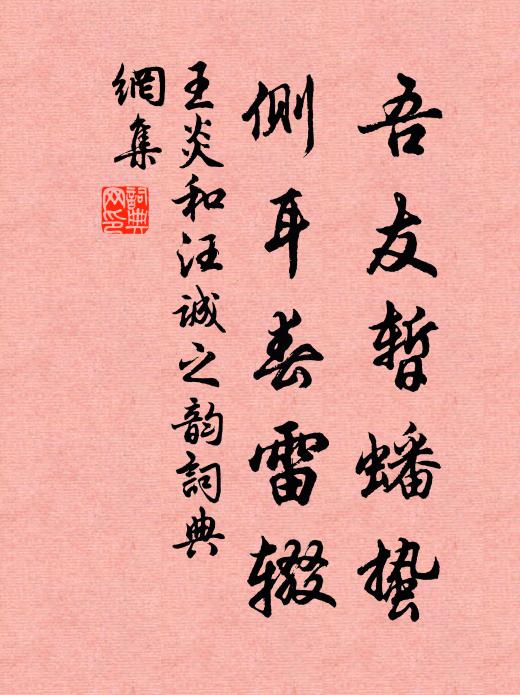 吾友暂蟠蛰
侧耳春雷辍
王炎和汪诚之韵词典
網集
詞典网印